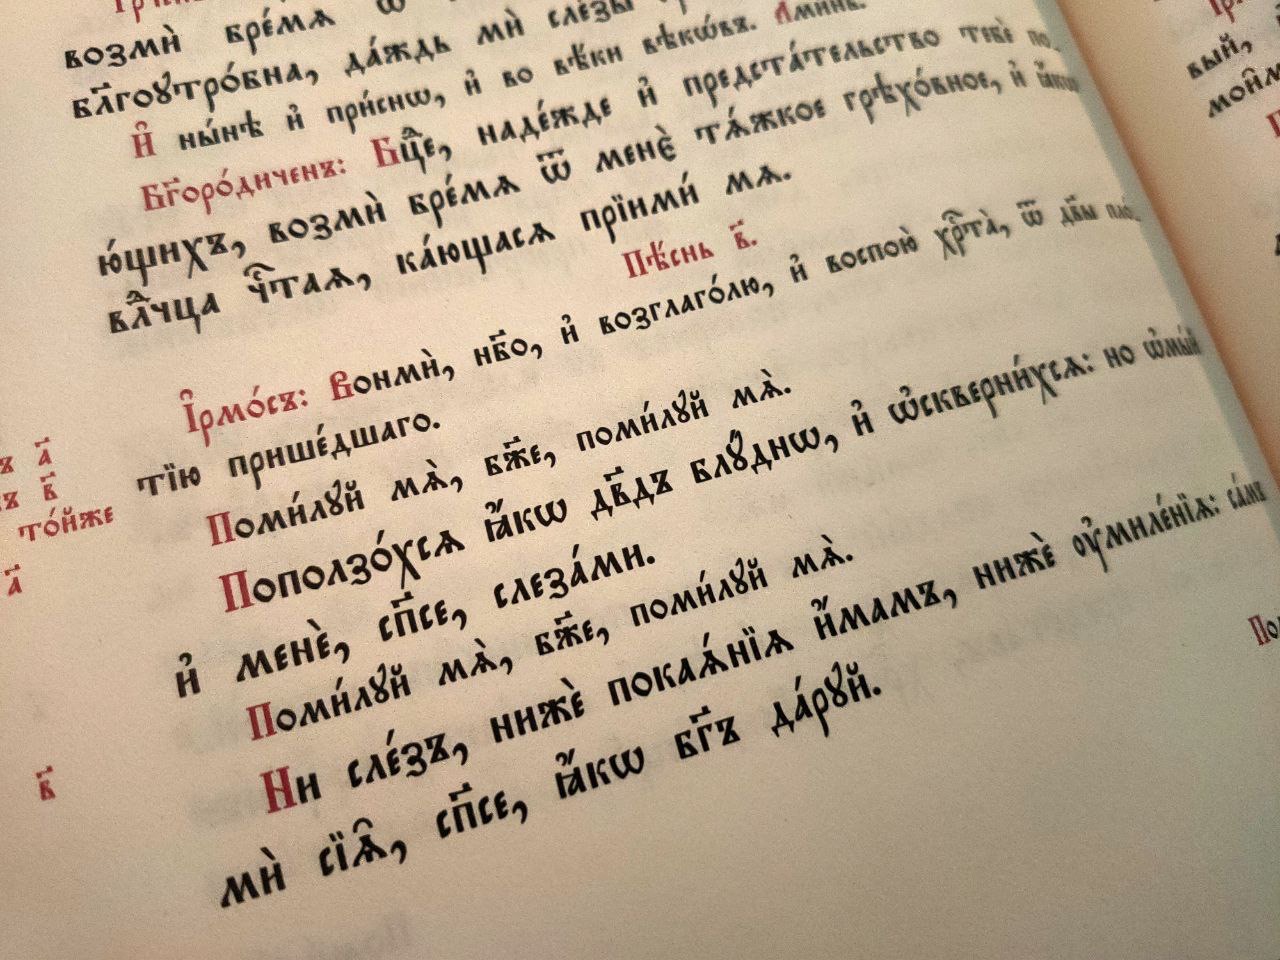 возмѝ бре́мѧ ѿ
бл҃гоꙋтро́бна, да́ждь мѝ сле́зы
И҆ ны́нѣ и҆ при́снѡ, и҆ во вѣ́ки вѣкѡ́въ. А҆минь.
Бг҃оро́диченъ: Бц҃е, наде́жде и҆ предста́тельство тебѐ по-
ю́щихъ, возмѝ бре́мѧ ѿ менѐ тѧ́жкое грѣхо́вное, и҆ ꙗ҆́кѡ
влⷣчца чⷭ҇таѧ, ка́ющасѧ прїими́ мѧ.
Пѣ́снь в҃.
І҆рмо́съ: Вонмѝ, нб҃о, и҆ возглаго́лю, и҆ воспою̀ хрⷭ҇та̀, ѿ дв҃ы пло́-
тїю прише́дшаго.
ъ а҃
ъ в҃
то́йже
а҃
Поми́лꙋй мѧ̀, бж҃е, поми́лꙋй мѧ̀.
Поползо́хсѧ ꙗ҆́кѡ дв҃дъ блꙋ́днѡ, и҆ ѡ҆скверни́хсѧ: но ѡ҆мы́й
и҆ менѐ, сп҃се, слеза́ми.
Поми́лꙋй мѧ̀, бж҃е, поми́лꙋй мѧ̀.
в҃
Ни сле́зъ, нижѐ покаѧ́нїѧ и҆́мамъ, нижѐ ᲂу҆миле́нїѧ: са́мъ
мѝ сїѧ̑, сп҃се, ꙗ҆́кѡ бг҃ъ да́рꙋй.
вый,